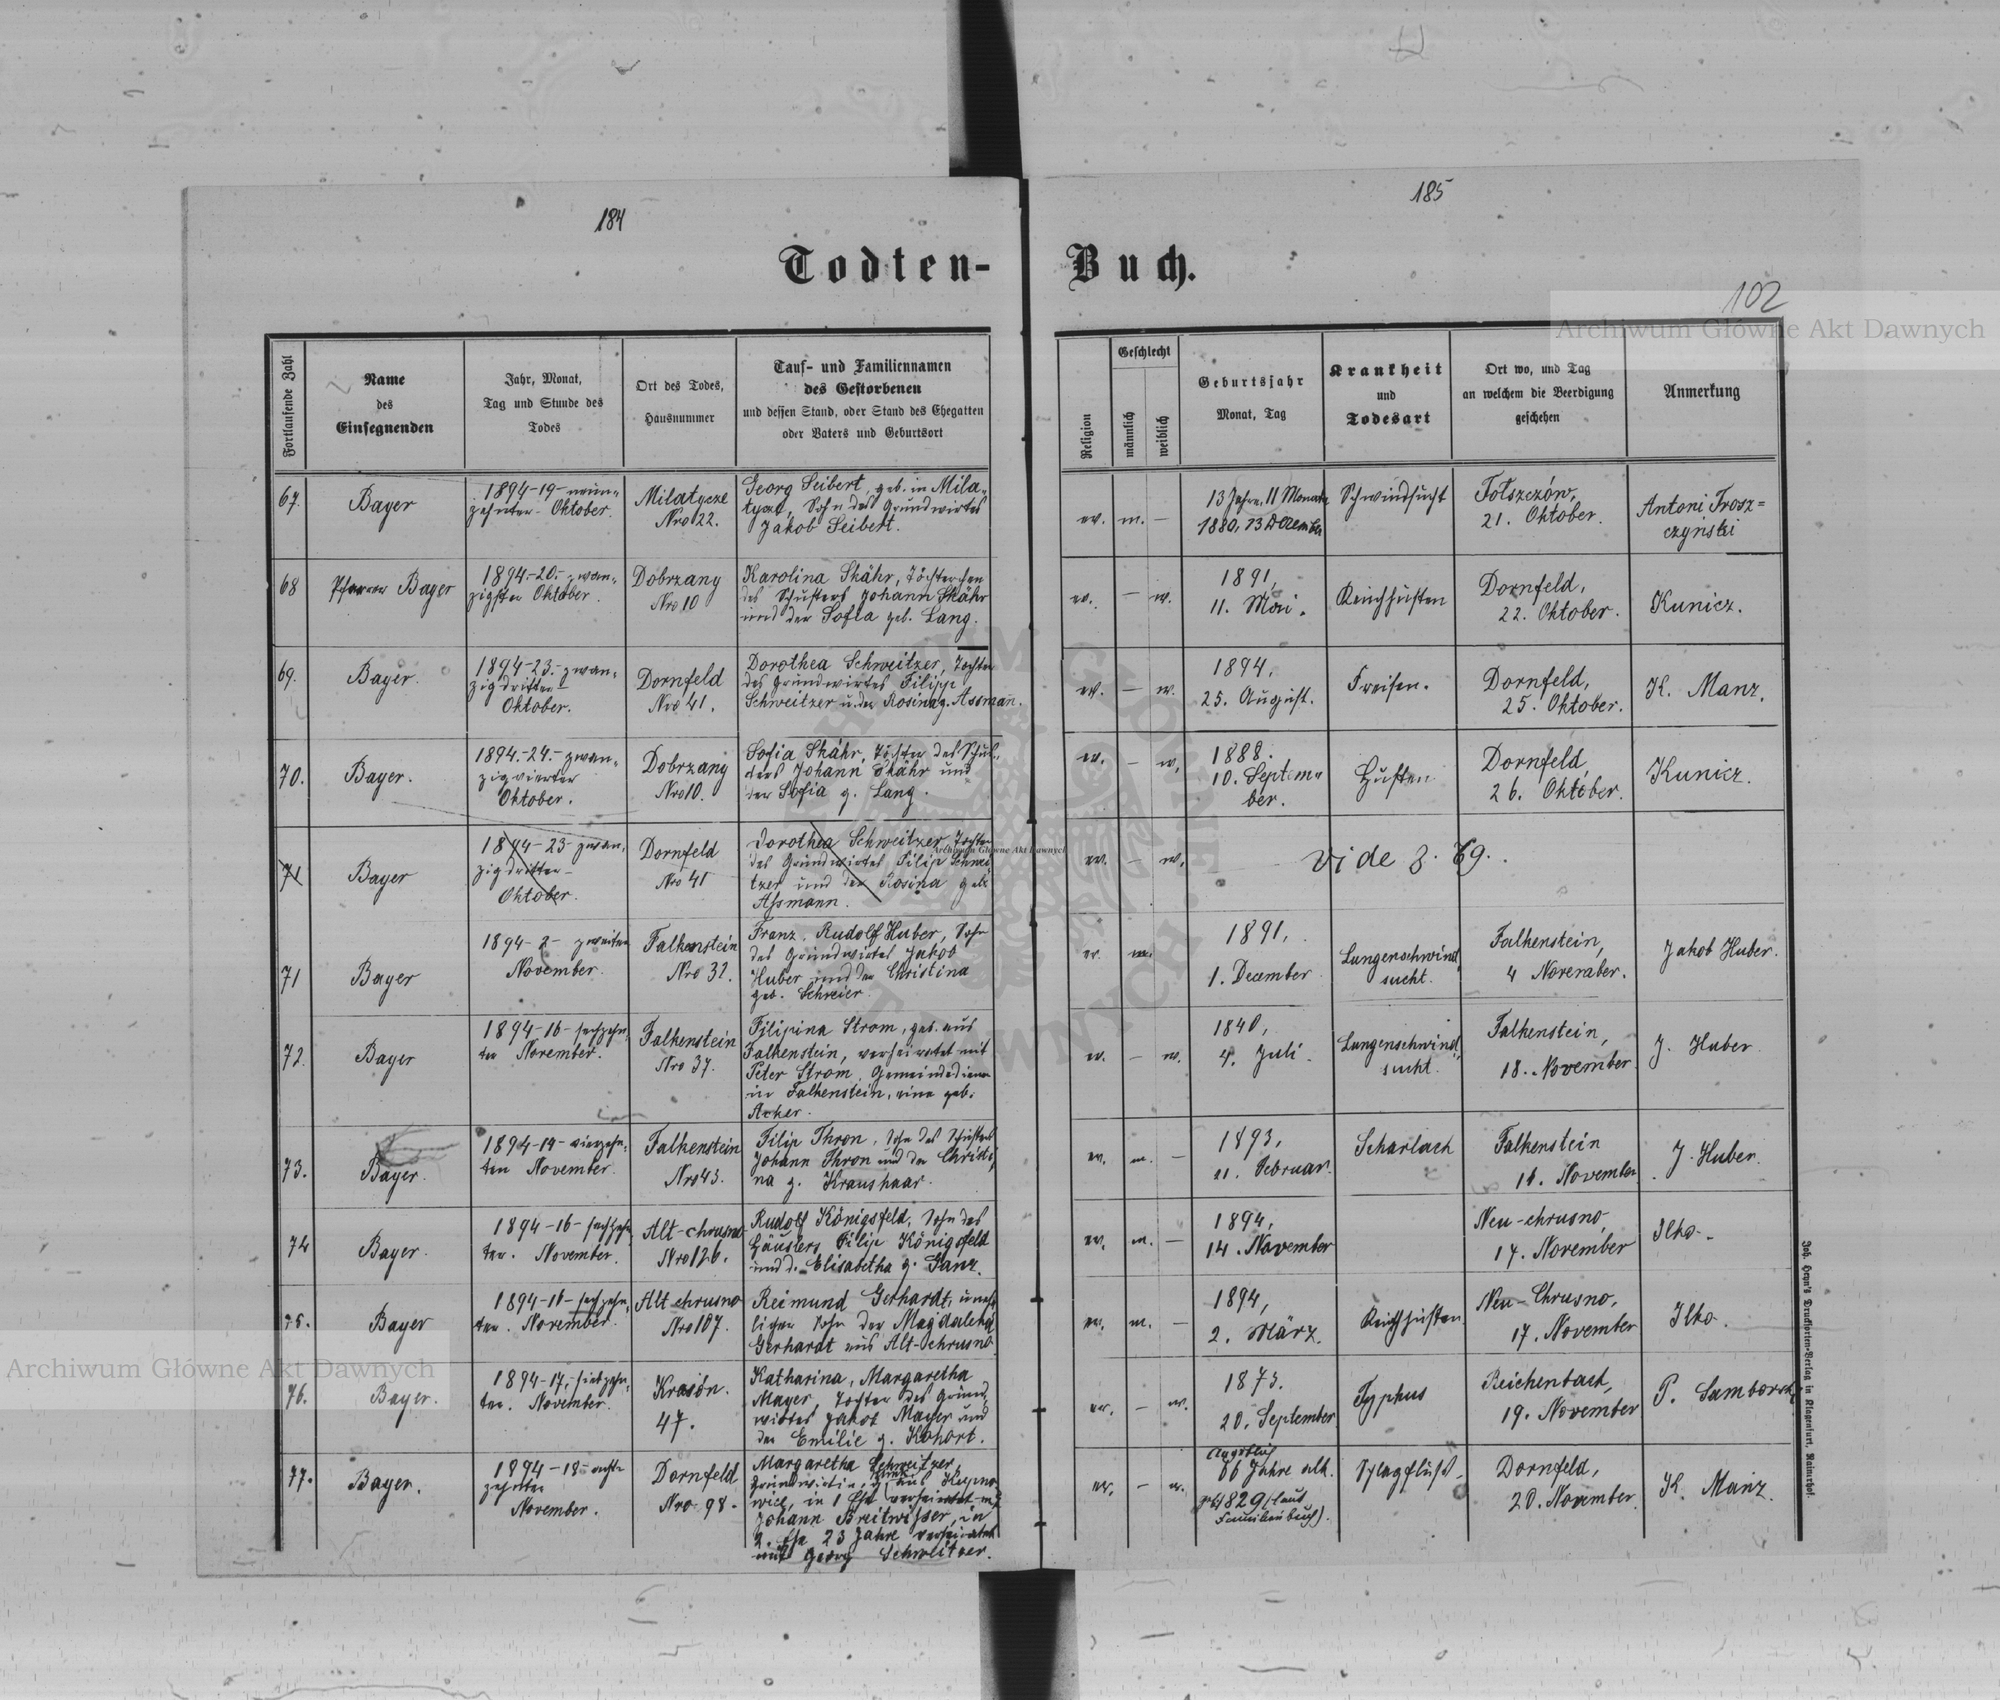 184
185
Todten-Buch.
102
Archiwum Główne Akt Dawnych
Fortlaufende Zahl
Name
des
Einsegnenden
Jahr, Monat,
Tag und Stunde des
Todes
Ort des Todes,
Hausnummer
Tauf- und Familiennamen
des Gestorbenen
und dessen Stand, oder Stand des Ehegatten
oder Vaters und Geburtsort
Religion
Geschlecht
männlich
weiblich
Geburtsjahr
Monat, Tag
Krankheit
und
Todesart
Ort wo, und Tag
an welchem die Beerdigung
geschehen
Anmerkung
67.
Bayer
1894-19-neun-
zehnter. Oktober.
Milatycze
Nro 22.
Georg Seibert, geb. in Mila-
tycze, Sohn des Grundwirtes
Jakob Seibert.
ev.
m.
—
13 Jahre, 11 Monate
1880, 13 December
Schwindsucht
Tołszczów,
21. Oktober.
Antoni Trosz=
czyński
68
Pfarrer Bayer
1894.-20.-zwan-
zigster Oktober.
Dobrzany
Nro 10
Karolina Skähr, Töchterchen
des Schusters Johann Skähr
und der Sofia geb. Lang.
ev.
—
w.
1891,
11. Mai.
Keuchhusten
Dornfeld,
22. Oktober.
Kunicz.
69.
Bayer.
1894-23.-zwan-
zigdritter
Oktober.
Dornfeld
Nro 41.
Dorothea Schweitzer, Tochter
des Grundwirtes Filipp
Schweitzer u. der Rosina g. Assmann.
ev.
—
w.
1894,
25. August.
Freisen.
Dornfeld,
25. Oktober.
K. Manz.
70.
Bayer.
1894.-24.-zwan-
zigvierter
Oktober.
Dobrzany
Nro 10.
Sofia Skähr, Tochter des Schus-
ters Johann Skähr und
der Sofia g. Lang.
ev.
—
w.
1888.
10. Septem-
ber.
Husten
Dornfeld,
26. Oktober.
Kunicz.
71
Bayer
1894-23-zwan-
zigdritter-
Oktober.
Dornfeld
Nro 41
Dorothea Schweitzer Tochter
des Grundwirtes Filip Schwei-
tzer und der Rosina geb.
Assmann.
ev.
—
w.
vide Z. 69.
71
Bayer
1894-2-zweiter
November.
Falkenstein
Nro 32.
Franz, Rudolf Huber, Sohn
des Grundwirtes Jakob
Huber und der Christina
geb. Schreier.
ev.
m.
1891,
1. December
Lungenschwind-
sucht.
Falkenstein,
4 November.
Jakob Huber.
72.
Bayer
1894-16-sechzehn-
ter November.
Falkenstein
Nro 37.
Filipina Strom, geb. aus
Falkenstein, verheiratet mit
Peter Strom, Gemeindediener
in Falkenstein, eine geb.
Acker.
ev.
—
w.
1840,
4. Juli.
Lungenschwind-
sucht.
Falkenstein,
18. November
J. Huber
73.
Bayer.
1894-14-vierzehn-
ter November.
Falkenstein
Nro 43.
Filip Thron, Sohn des Schusters
Johann Thron und der Christi-
na g. Kraushaar.
ev.
m.
—
1893,
21. Februar.
Scharlach
Falkenstein
16. November
J. Huber.
74
Bayer.
1894-16-sechzehn-
ter. November.
Alt-chrusno
Nro 126.
Rudolf Königsfeld, Sohn des
Häuslers Filip Königsfeld
und d. Elisabetha g. Ganz.
ev.
m.
—
1894,
14. November
Neu-chrusno,
17. November
Ilko.
75.
Bayer
1894-16-sechzehn-
ter. November.
Alt chrusno
Nro 107.
Reimund Gerhardt, unehe-
licher Sohn der Magdalena
Gerhardt aus Alt-Chrusno.
ev.
m.
—
1894,
2. März.
Keuchhusten.
Neu-Chrusno,
17. November
Ilko.
76.
Bayer.
1894-17.-siebzehn-
ter. November.
Krasón.
47.
Katharina, Margaretha
Mayer, Tochter des Grund-
wirtes Jakob Mayer und
der Emilie g. Kohort.
ev.
—
w.
1873.
20. September
Typhus
Reichenbach,
19. November
P. Samborski
77.
Bayer.
1894-18-acht-
zehnter
November.
Dornfeld
Nro 98.
Margaretha Schweitzer,
Grundwirtin, aus Kupno-
wice, in 1 Ehe verheiratet mit
Johann Breitwisser, in
2. Ehe 23 Jahre verheiratet
mit Georg Schweitzer.
ev.
—
w.
angeblich
66 Jahre alt.
1829 (laut
Familienbuch).
Schlagfluß.
Dornfeld,
20. November.
K. Manz.
Joh. Heyn's Drucksorten-Verlag in Klagenfurt, Rainerhof.
Archiwum Główne Akt Dawnych
Archiwum Główne Akt Dawnych